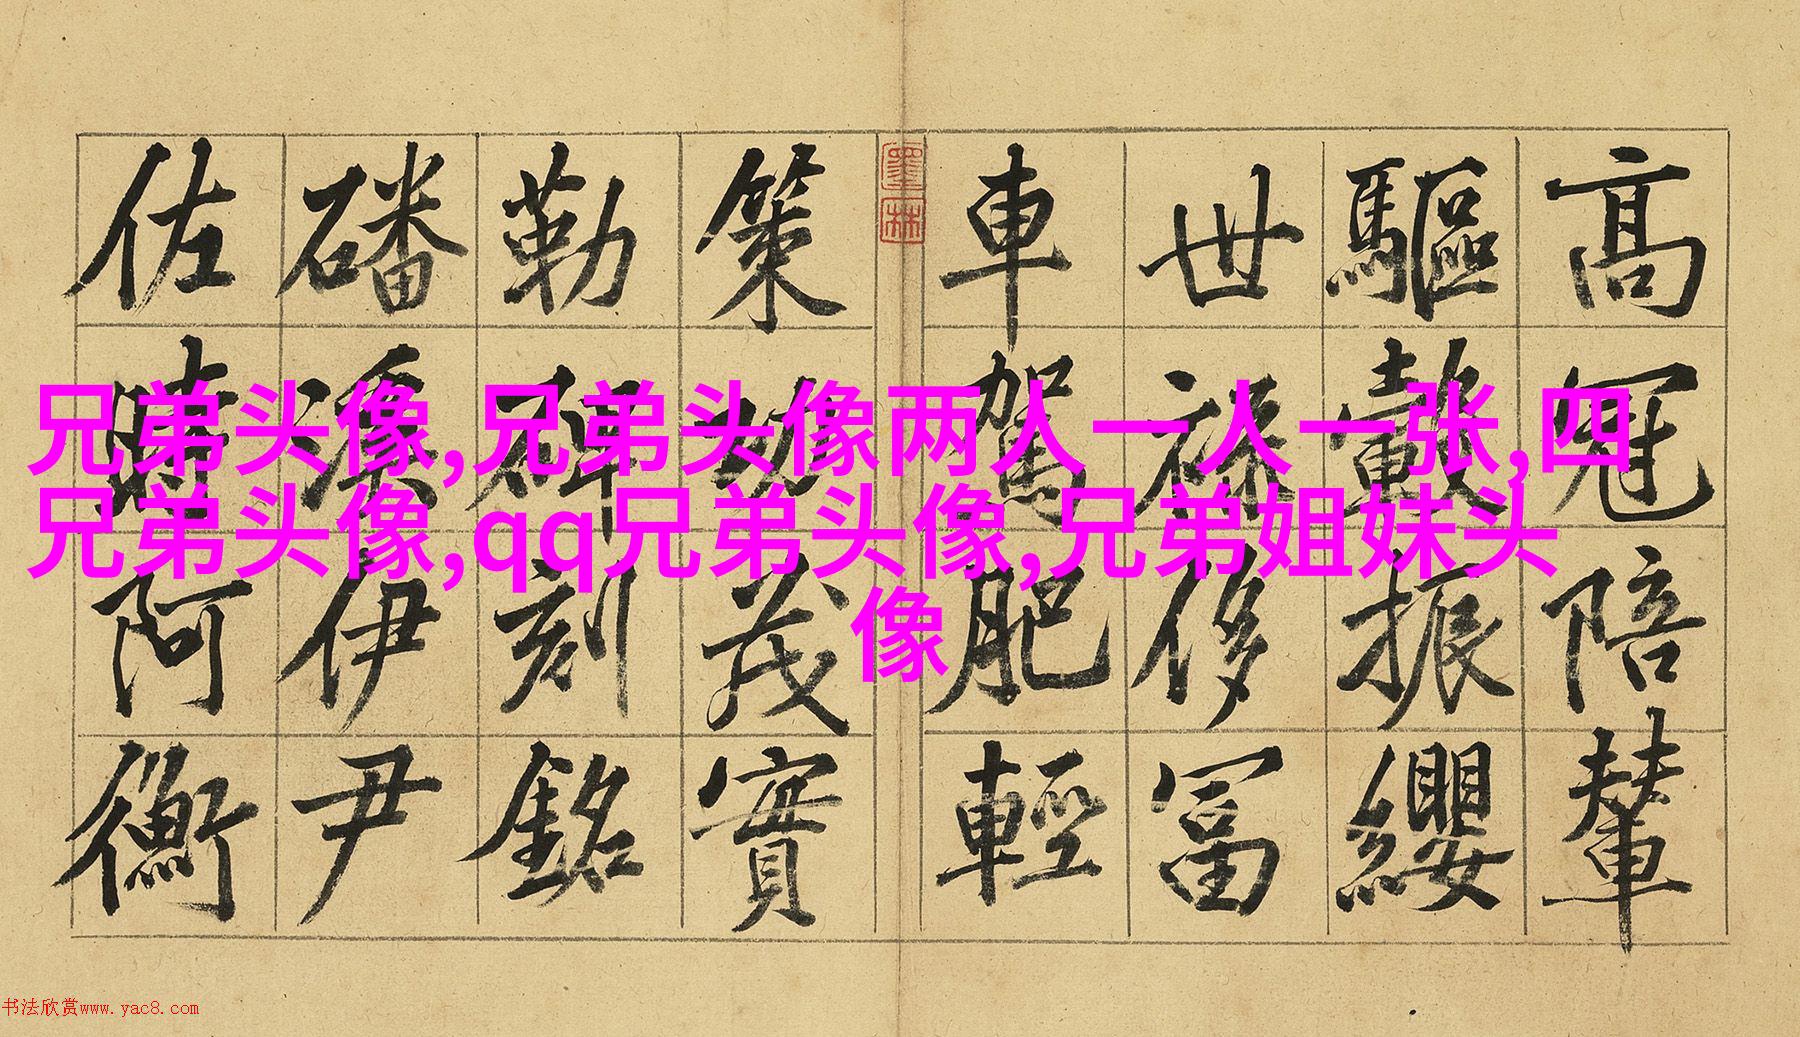 高冠陪輦
驅轂振纓
世祿侈富
車駕肥輕
墨林
策功茂實
勒碑刻銘
磻溪伊尹
佐時阿衡
兄弟头像,兄弟头像两人一人一张,四
兄弟头像,qq兄弟头像,兄弟姐妹头
像
书法欣赏www.yac8.com